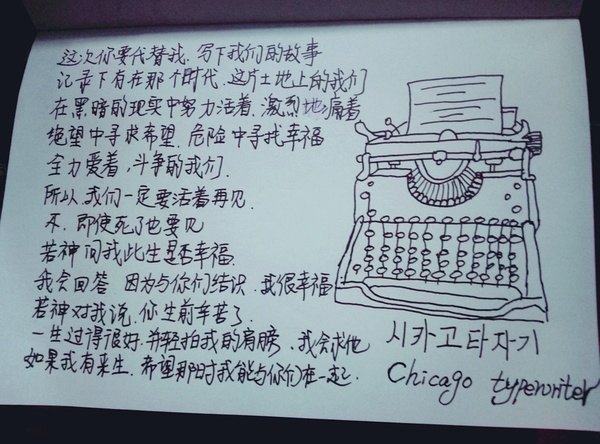 这次你要代替我.写下我们的故事
记录下有在那个时代.这片土地上的我们
在黑暗的现实中努力活着.激烈地痛着
绝望中寻求希望.危险中寻找幸福
全力爱着,斗争的我们.
所以.我们一定要活着再见.
不.即使死了也要见
若神问我此生是否幸福.
我会回答 因为与你们结识.我很幸福
若神对我说.你生前辛苦了.
一生过得很好.并轻拍我的肩膀、我会求他
如果我有来生.希望那时我能与你们在一起.
시카고타자기
Chicago typewriter